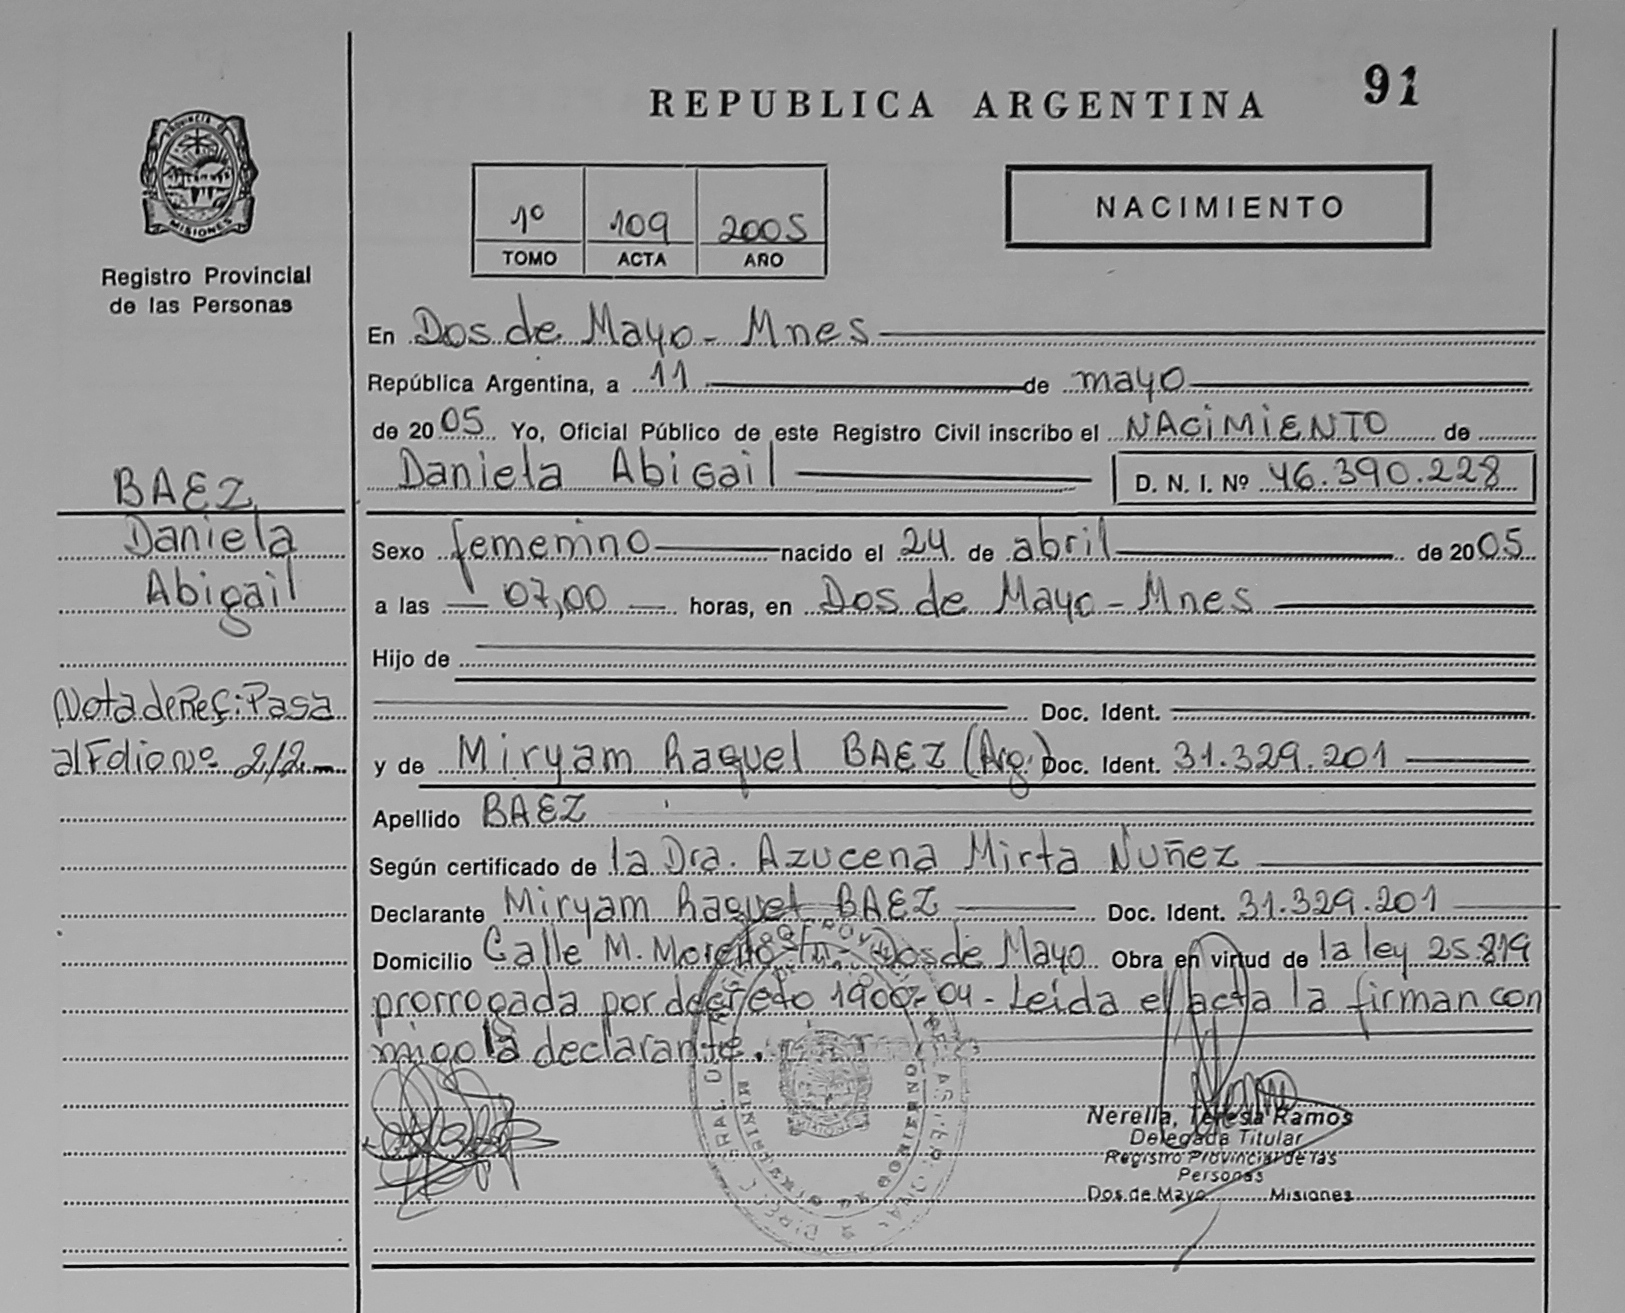 REPUBLICA ARGENTINA
91
PROVINCIA DE
MISIONES
Registro Provincial
de las Personas
1º 109 2005
TOMO ACTA AÑO
NACIMIENTO
En Dos de Mayo - Mnes
República Argentina, a 11 de mayo
de 2005 Yo, Oficial Público de este Registro Civil inscribo el NACIMIENTO de
Daniela Abigail D. N. I. Nº 46.390.228
BAEZ
Daniela
Abigail
Sexo femenino nacido el 24 de abril de 2005
a las 07,00 horas, en Dos de Mayo - Mnes
Hijo de
Doc. Ident.
Nota de Ref: Pasa
al Folio nº 212
y de Miryam Raquel BAEZ (Arg.) Doc. Ident. 31.329.201
Apellido BAEZ
Según certificado de la Dra. Azucena Mirta Nuñez
Declarante Miryam Raquel BAEZ Doc. Ident. 31.329.201
Domicilio Calle M. Moreno S/n - Dos de Mayo Obra en virtud de la ley 25.819
prorrogada por decreto 1900-04 - Leida el acta la firman con
migo la declarante.
Nerella, Teresa Ramos
Delegada Titular
Registro Provincial de las
Personas
Dos de Mayo Misiones